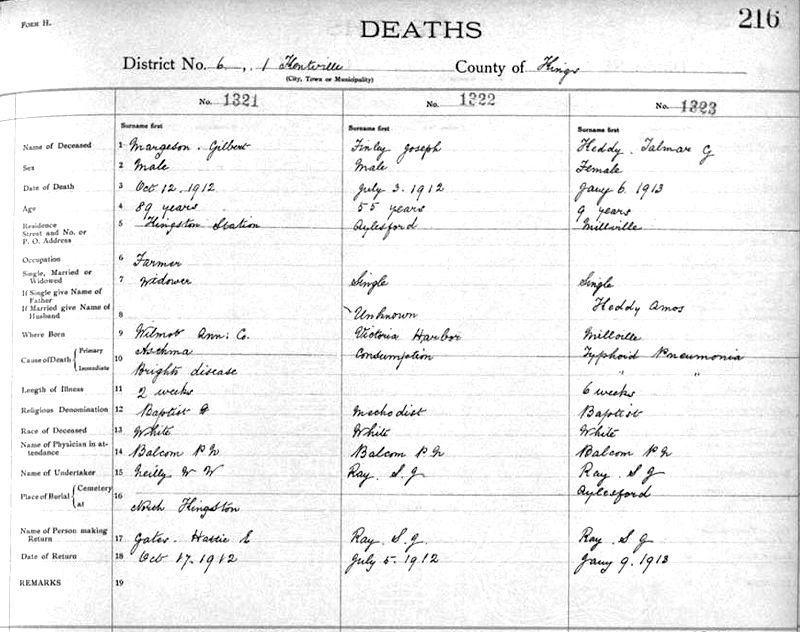 FORM H.
DEATHS
216
District No. 6, 1 Kentville County of Kings
(City, Town or Municipality)
No. 1321 No. 1322 No. 1323
Surname first Surname first Surname first
Name of Deceased 1 Margeson. Gilbert Finley Joseph Heddy. Talmar G
Sex 2 Male Male Female
Date of Death 3 Oct 12. 1912 July 3. 1912 Jany 6. 1913
Age 4 89 years 55 years 9 years
Residence
Street and No. or
P. O. Address 5 Kingston Station Aylesford Millville
Occupation 6 Farmer
Single, Married or
Widowed 7 Widower Single Single
If Single give Name of
Father
If Married give Name of
Husband 8 Unknown Heddy Amos
Where Born 9 Wilmot Ann: Co. Victoria Harbor Millville
Cause of Death { Primary
Immediate 10 Asthma Consumption Typhoid Pneumonia
Brights disease " "
Length of Illness 11 2 weeks 6 weeks
Religious Denomination 12 Baptist Methodist Baptist
Race of Deceased 13 White White White
Name of Physician in at-
tendance 14 Balcom P N Balcom P N Balcom P N
Name of Undertaker 15 Neilly W W Ray. S. G Ray. S. G
Place of Burial { Cemetery
at 16 North Kingston Aylesford
Name of Person making
Return 17 Gates. E Ray. S. G. Ray. S G
Date of Return 18 Oct 17. 1912 July 5. 1912 Jany 9. 1913
REMARKS 19